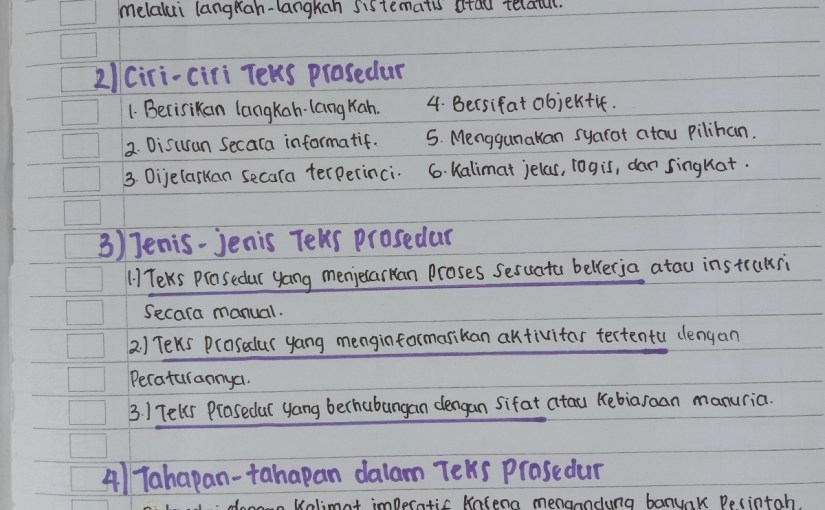 melalui langkah-langkah sistematis atau teratur.
2) Ciri-ciri Teks prosedur
1. Berisikan langkah-langkah. 4. Bersifat objektif.
2. Disusun secara informatif. 5. Menggunakan syarat atau pilihan.
3. Dijelaskan secara terperinci. 6. Kalimat jelas, logis, dan singkat.
3) Jenis-jenis Teks prosedur
1.) Teks prosedur yang menjelaskan proses sesuatu bekerja atau instruksi
secara manual.
2.) Teks prosedur yang menginformasikan aktivitas tertentu dengan
Peraturannya.
3.) Teks prosedur yang berhubungan dengan sifat atau kebiasaan manusia.
4) Tahapan-tahapan dalam Teks prosedur
dengan kalimat imperatif karena mengandung banyak perintah.